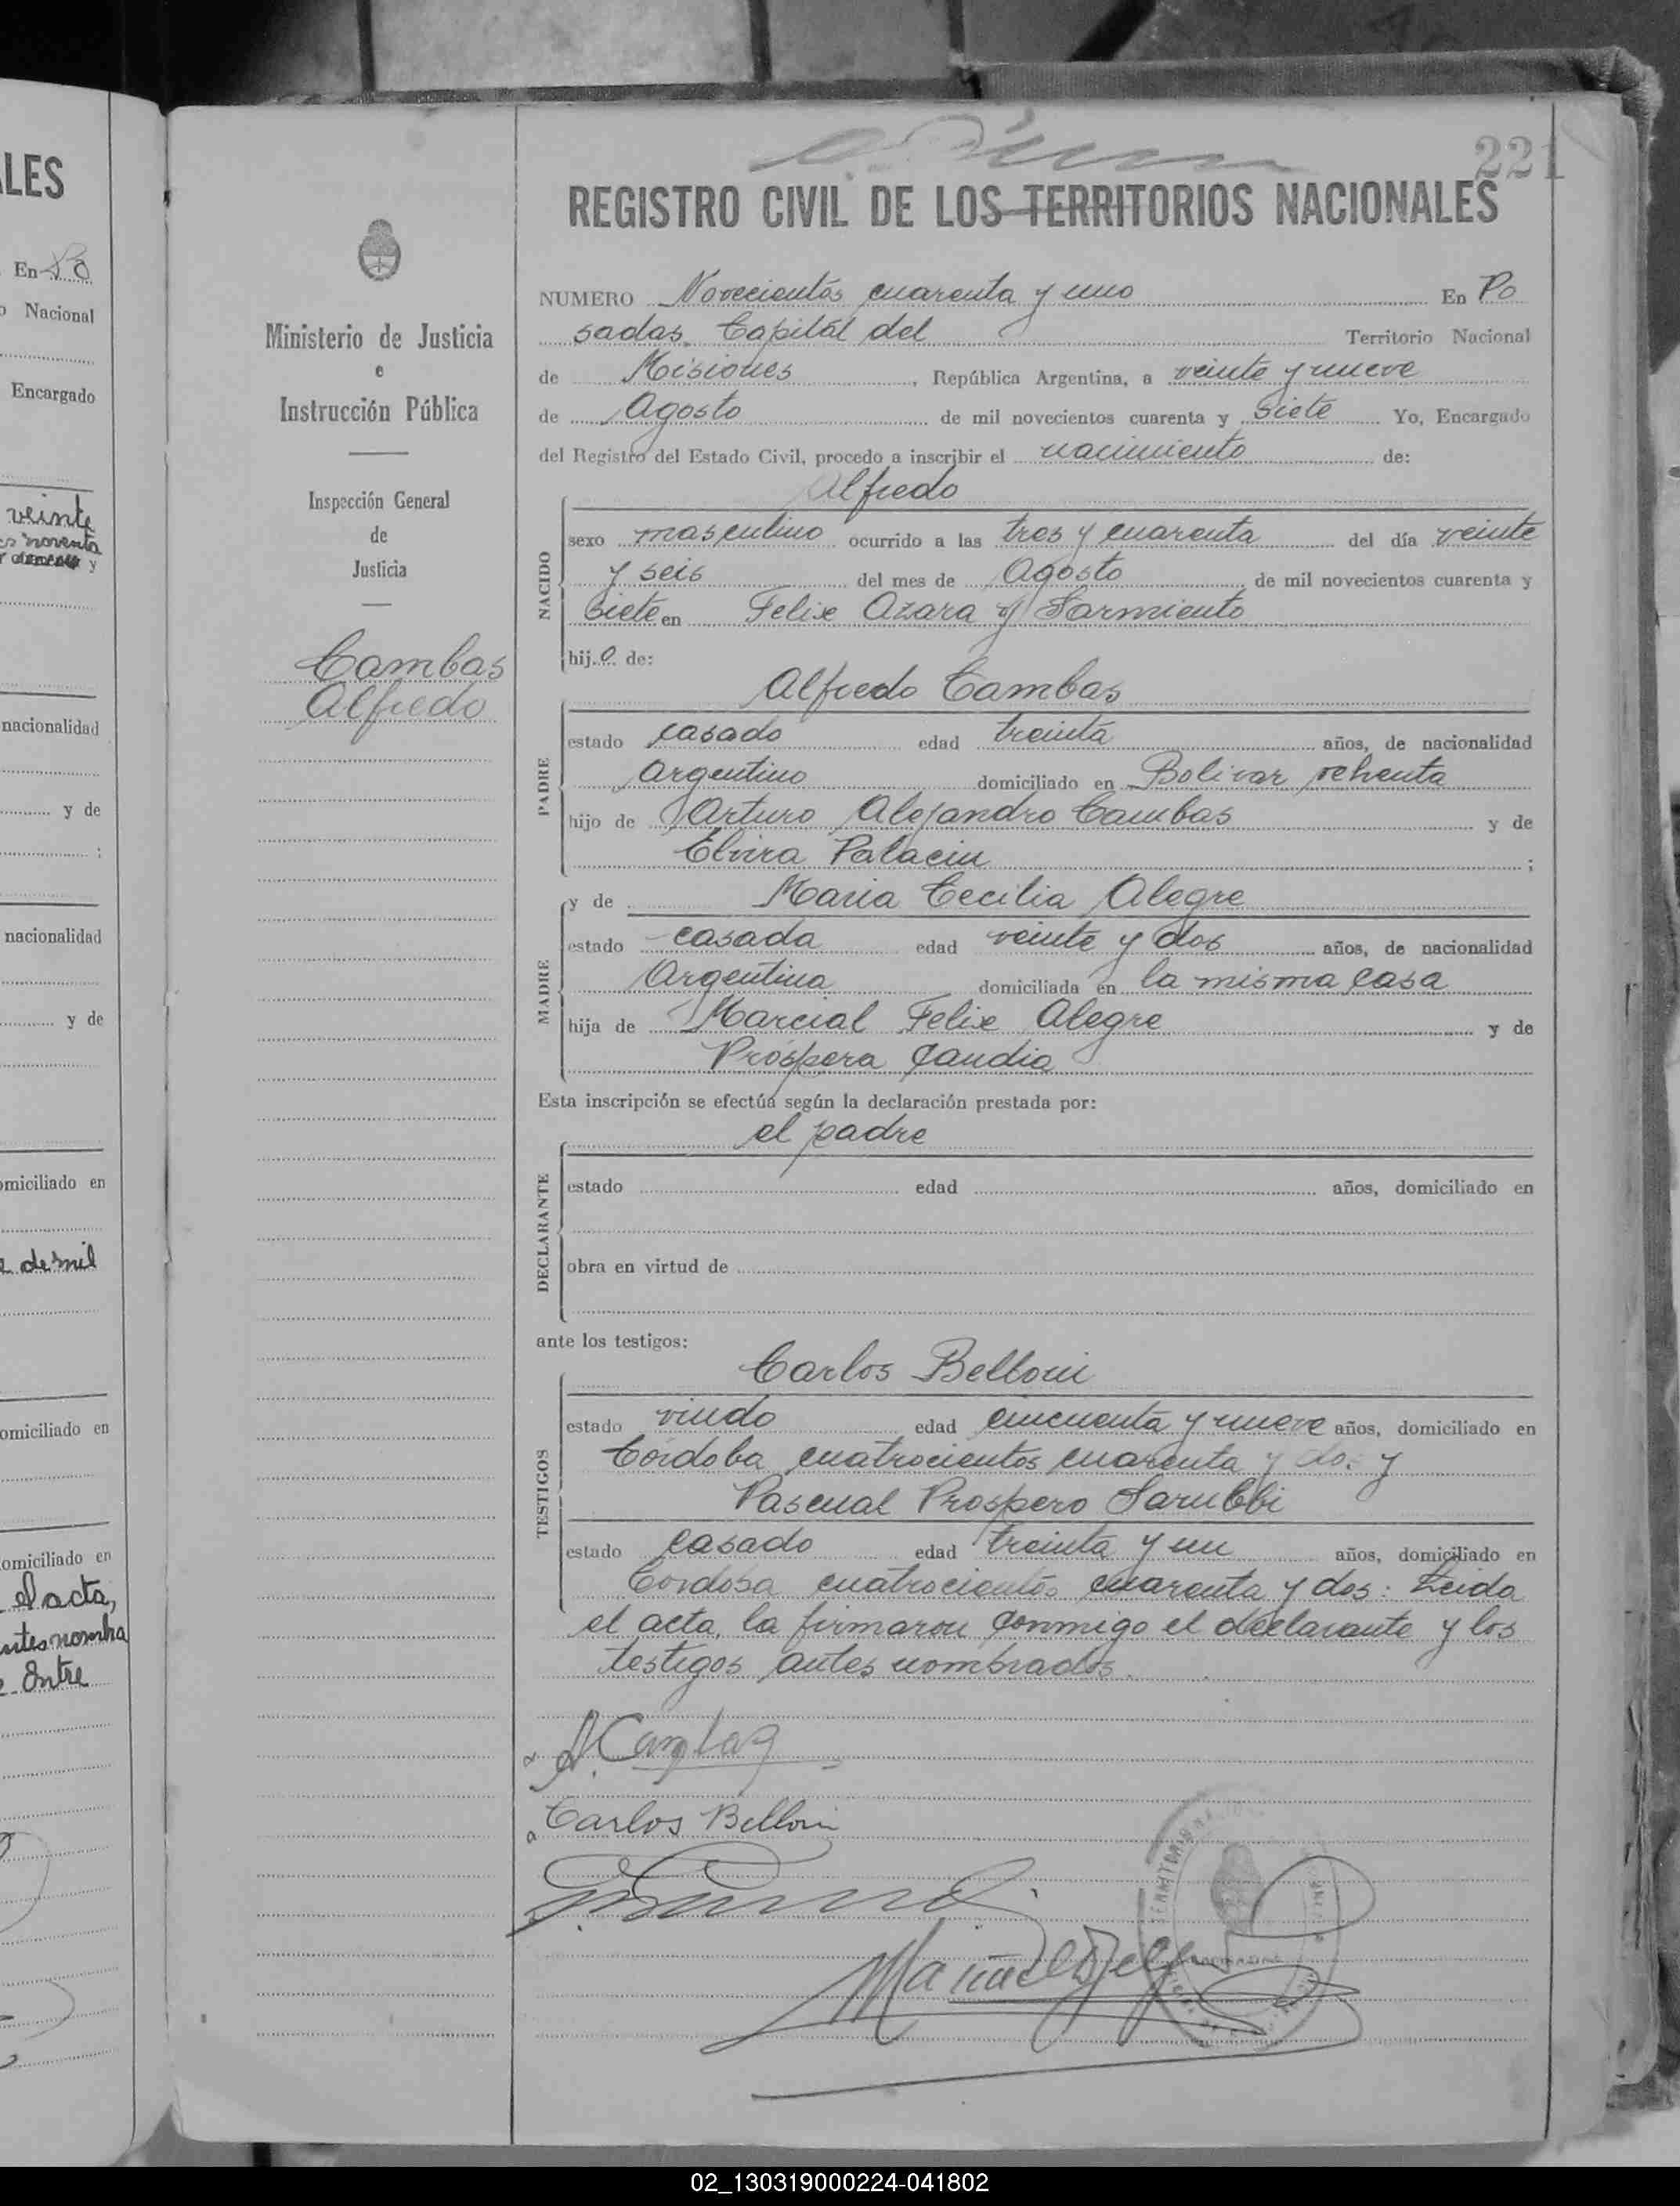 ALES
En Po
o Nacional
Encargado
veinte
es noventa
y
nacionalidad
y de
;
nacionalidad
y de
omiciliado en
e de mil
omiciliado en
omiciliado en
el acta,
antes nombra
Entre
Ministerio de Justicia
e
Instrucción Pública
Inspección General
de
Justicia
Cambas
Alfredo
221
REGISTRO CIVIL DE LOS TERRITORIOS NACIONALES
NUMERO Novecientos cuarenta y uno En Po
sadas, Capital del Territorio Nacional
de Misiones, República Argentina, a veinte y nueve
de Agosto de mil novecientos cuarenta y siete Yo, Encargado
del Registro del Estado Civil, procedo a inscribir el nacimiento de:
Alfredo
NACIDO
sexo masculino ocurrido a las tres y cuarenta del día veinte
y seis del mes de Agosto de mil novecientos cuarenta y
siete en Felix Azara y Sarmiento
hijo de:
Alfredo Cambas
PADRE
estado casado edad treinta años, de nacionalidad
Argentino domiciliado en Bolivar ochenta
hijo de Arturo Alejandro Cambas y de
Elvira Palacin ;
y de Maria Cecilia Alegre
MADRE
estado casada edad veinte y dos años, de nacionalidad
Argentina domiciliada en la misma casa
hija de Marcial Felix Alegre y de
Próspera Gaudia
Esta inscripción se efectúa según la declaración prestada por:
el padre
DECLARANTE
estado edad años, domiciliado en
obra en virtud de
ante los testigos:
Carlos Belloni
TESTIGOS
estado viudo edad cincuenta y nueve años, domiciliado en
Córdoba cuatrocientos cuarenta y dos y
Pascual Prospero Sarubbi
estado casado edad treinta y un años, domiciliado en
Cordoba cuatrocientos cuarenta y dos: Leida
el acta, la firmaron conmigo el declarante y los
testigos antes nombrados.
A. Cambas
Carlos Belloni
02_130319000224-041802